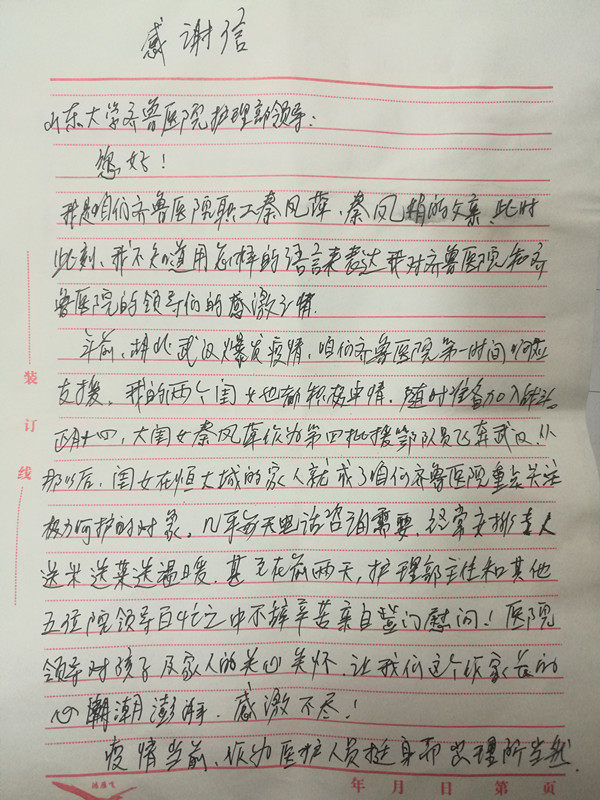 感谢信
山东大学齐鲁医院护理部领导：
您好！
我是咱们齐鲁医院职工秦风萍、秦风梢的父亲，此时
此刻，我不知道用怎样的语言来表达我对齐鲁医院和齐
鲁医院的领导们的感激之情.
年前，湖北武汉爆发疫情，咱们齐鲁医院第一时间响应
支援。我的两个闺女也都积极申请，随时准备加入战斗。
正月十四，大闺女秦风萍作为第四批援鄂队员飞奔武汉.从
那以后，闺女在恒大城的家人就成了咱们齐鲁医院重点关注
极力呵护的对象。几乎每天电话咨询需要，经常安排专人
送米送菜送温暖.甚至在前两天，护理部主任和其他
五位院领导百忙之中不辞辛苦亲自登门慰问！医院
领导对孩子及家人的关心关怀.让我们这个做家长的
心潮潮澎湃.感激不尽！
疫情当前、作为医护人员挺身而出理所当然.
装订线
年 月 日 第 页